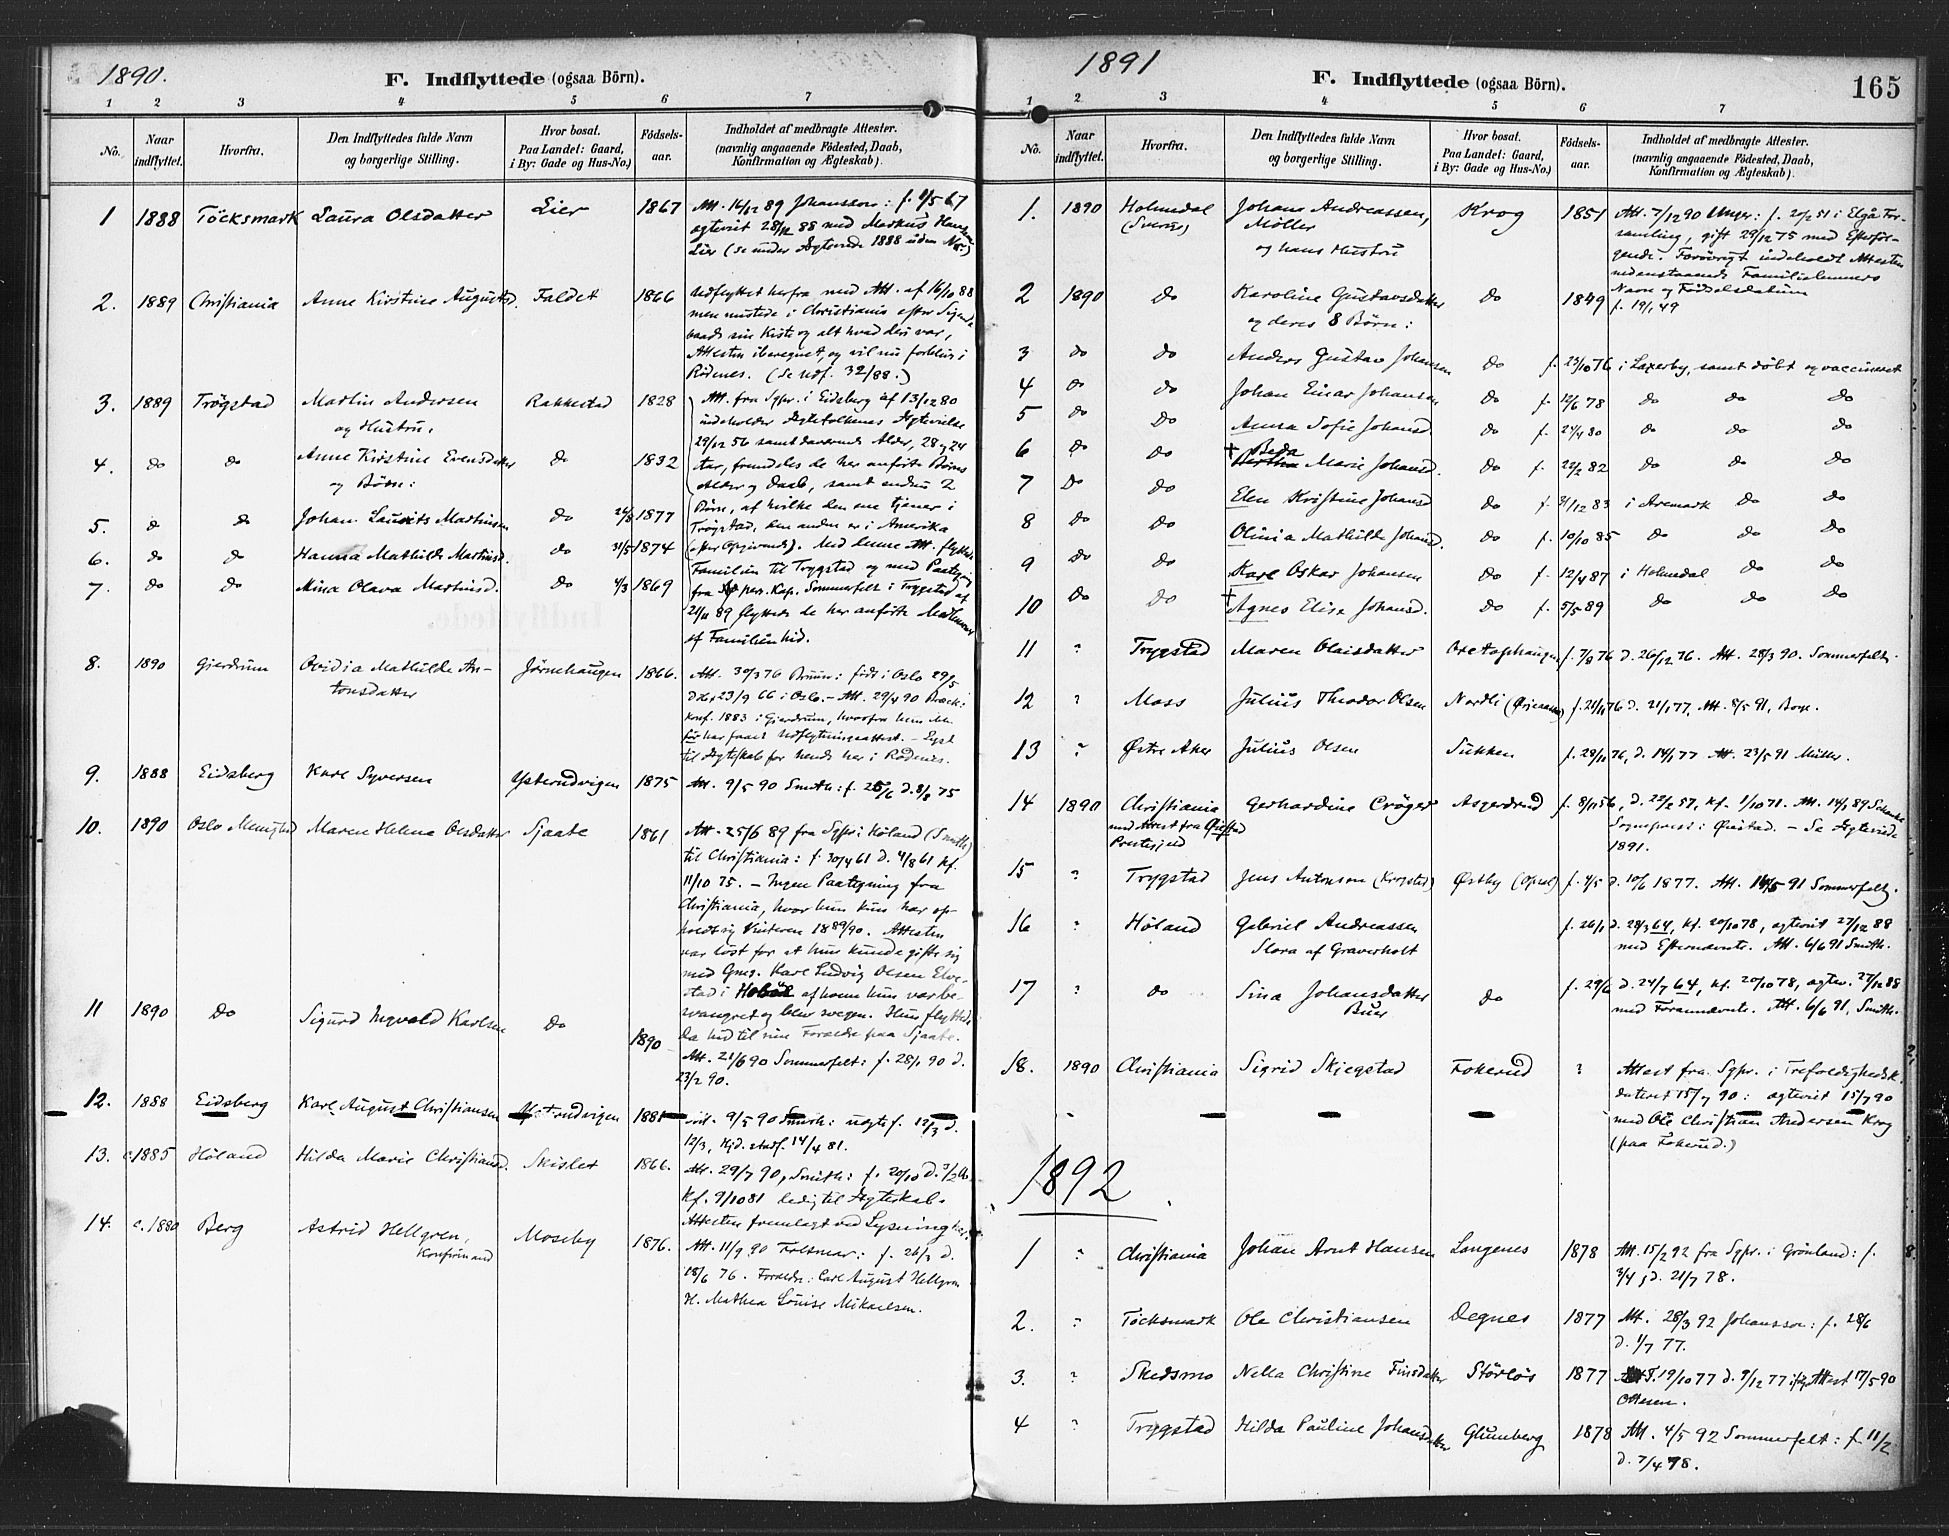 1890.
F. Indflyttede (ogsaa Börn).
1 2 3 4 5 6 7
No.
Naar indflyttet.
Hvorfra.
Den Indflyttedes fulde Navn
og borgerlige Stilling.
Hvor bosat.
Paa Landet: Gaard,
i By: Gade og Hus-No.)
Födsels-
aar.
Indholdet af medbragte Attester.
(navnlig angaaende Födested, Daab,
Konfirmation og Ægteskab).
1 1888 Töcksmark Laura Olsdatter Lier 1867 Att. 16/12 89 Johansson: f. 9/5 67
ægteviet 28/12 88 med Markus Hansen
Lier (se under Ægteviede 1888 uden No.)
2. 1889 Christiania Anne Kirstine Augustd. Faldet 1866 Udflyttet herfra med Att. af 16/10 88
men mistede i Christiania efter Sigende
baade sin Kiste og alt hvad deri var,
Attesten iberegnet, og vil nu forblive i
Rödenes. (Se Udf. 32/88.)
3. 1889 Trögstad Martin Andersen Rakkestad 1828 Att. fra Sgpr. i Eidsberg af 13/12 80
og Hustru: indeholder Ægtefolkenes Ægtevielse
29/12 56 samt daværende Alder, 28 og 24
4. do do Anne Kirstine Evensdatter do 1832 Aar, fremdeles de her anförte Börns
og Börn: Alder og Daab, samt endnu 2
Börn, af hvilke den ene tjener i
5. do do Johan Laurits Martinsen do 26/8 1877 Trögstad, den anden er i Amerika
6. do do Hanna Mathilde Martinsd. do 31/5 1874 (efter Opgivende). Med denne Att. flyttede
Familien til Trygstad og med Paategning
7. do do Mina Olava Martinsd. do 4/3 1869 fra pers. Kap. Sommerfelt i Trygstad af
21/11 89 flyttede de her anförte Medlemmer
af Familien hid.
8. 1890 Gjerdrum Ovidia Mathilde An- Jörnehaugen 1866. Att. 30/3 76 Bruun: födt i Oslo 29/5
tonsdatter Döbt 23/9 66 i Oslo. - Att. 29/4 90
Konf. 1883 i Gjerdrum, hvorfra hun
för har faaet Udflytningsattest. - Lyst
til Ægteskab for hende her i Rödenes.
9. 1888 Eidsberg Karl Syversen Ysterudvigen 1875 Att. 9/5 90 Smith: f. 25/6 d. 8/8 75
10. 1890 Oslo Menighed Maren Helena Olsdatter Sjaate 1861 Att. 25/6 89 fra Sgpr i Höland (Smith)
til Christiania: f. 30/4 61 d. 4/8 61 kf.
11/10 75. - Ingen Paategning fra
Christiania, hvor hun kun har op-
holdt sig Vinteren 1889/90. Attesten
var löst for at hun kunde gifte sig
med Gmd. Karl Ludvig Olsen Elve-
stad i Haböl af hvem hun var be-
11 1890 Do Sigurd Ingvald Karlsen Do 1890 svangret og blev svegen. Hun flyttede
da hid til sine Forældre paa Sjaate.
Att. 21/6 90 Sommerfelt: f. 28/1 90 d.
23/2 90.
12. 1888 Eidsberg Karl August Christiansen Ysterudvigen 1881 Att. 9/5 90 Smith: uægte f. 12/3 d.
12/3, Kjd. stadf. 14/4 81.
13. c. 1885 Höland Hilda Marie Christiansd. Skislet 1866. Att. 29/7 90, Smith: f. 20/10 d.
Kf. 9/10 81 ledig til Ægteskab.
Attesten fremlagt ved Lysning her.
14. c. 1880 Berg Astrid Hellgren, Moseby 1876. Att. 11/9 90 : f. 26/3 d.
Konfirmand 18/6 76. Forældre: Carl August Hellgren
H. Mathea Louise Mikaelsen.
1891
F. Indflyttede (ogsaa Börn).
165
1 2 3 4 5 6 7
No.
Naar indflyttet.
Hvorfra.
Den Indflyttedes fulde Navn
og borgerlige Stilling.
Hvor bosat.
Paa Landet: Gaard,
i By: Gade og Hus-No.)
Födsels-
aar.
Indholdet af medbragte Attester.
(navnlig angaaende Födested, Daab,
Konfirmation og Ægteskab).
1. 1890 Holmedal Johan Andreassen, Krog 1851 Att. 7/12 90 Unger: f. 20/2 51 i Elgå For-
(Sverige) Möller samling, gift 29/12 75 med Efterföl-
og hans Hustru gende. Forövrigt indeholdt Attesten
nedenstaaende Familielemmers
Navn og Födselsdatum
2 1890 do Karoline Gustavsdatter do 1849 f. 19/1 49
og deres 8 Börn:
3 do do Anders Gustav Johansen do f. 23/10 76 i Laxerby, samt döbt og vaccineret
4 do do Johan Einar Johansen do f. 12/6 78 do do do
5 do do Anna Sofie Johansd. do f. 24/4 80 do do do
6 do do † Beda Bertha Marie Johansd. do f. 22/2 82 do do do
7 do do Elen Kristine Johansd do f. 31/12 83 i Aremark do do
8 do do Olinia Mathilde Johansd. do f. 10/10 85 do do do
9 do do Karl Oskar Johansen do f. 12/4 87 i Holmedal do do
10 do do † Agnes Elise Johansd. do f. 5/5 89 do do do
11 " Trygstad Maren Olaisdatter f. 7/8 76 d. 26/12 76. Att. 28/3 90. Sommerfelt.
12 " Moss Julius Theodor Olsen Nordli f. 28/11 76 d. 21/1 77. Att. 8/5 91,
13 " Østre Aker Julius Olsen Sukken f. 28/11 76, d. 14/1 77 Att. 23/5 91 Müller.
14 1890 Christiania Gerhardine Cröger Asgerdrud f. 8/11 56, d. 29/2 57, kf. 1/10 71. Att. 14/1 89
med Attest fra Øiestad Sognepræst i Øiestad. - Se Ægteviede
Prestegjeld 1891.
15 " Trygstad Jens Antonsen (Krogstad) Østby f. 4/5 d. 10/6 1877. Att. 14/5 91 Sommerfelt.
16 " Höland Gabriel Andreassen f. 26/1 d. 28/3 64, kf. 20/10 78, ægteviet 27/12 88
Slora af Graverholt med Efternævnte. Att. 6/6 91 Smith.
17 " do Sina Johansdatter do f. 29/6 d. 24/7 64, kf. 20/10 78, ægtev. 27/12 88
Buer med Forannævnte. Att. 6/6 91, Smith.
18. 1890 Christiania Sigrid Skjegstad Fokerud ? Attest fra Sgpr. i Trefoldighedsk.
dateret 15/7 90: ægteviet 15/7 90
med Ole Christian Andersen Krog
(paa Fokerud.)
1892
1 " Christiania Johan Arnt Hansen Langenes 1878 Att. 15/2 92 fra Sgpr. i Grönland: f.
3/4, d. 21/7 78.
2. " Töcksmark Ole Christiansen Degnes 1877 Att. 28/3 92 Johansson: f. 28/6
d. 1/7 77.
3. " Skedsmo Nella Christine Finsdatter Störlös 1877 f. 19/10 77 d. 9/12 77 ifg. Attest 17/5 90
Ottesen.
4 " Trygstad Hilda Pauline Johansdatter Glumberg 1878 Att. 4/5 92 Sommerfelt: f. 11/2
d. 7/4 78.